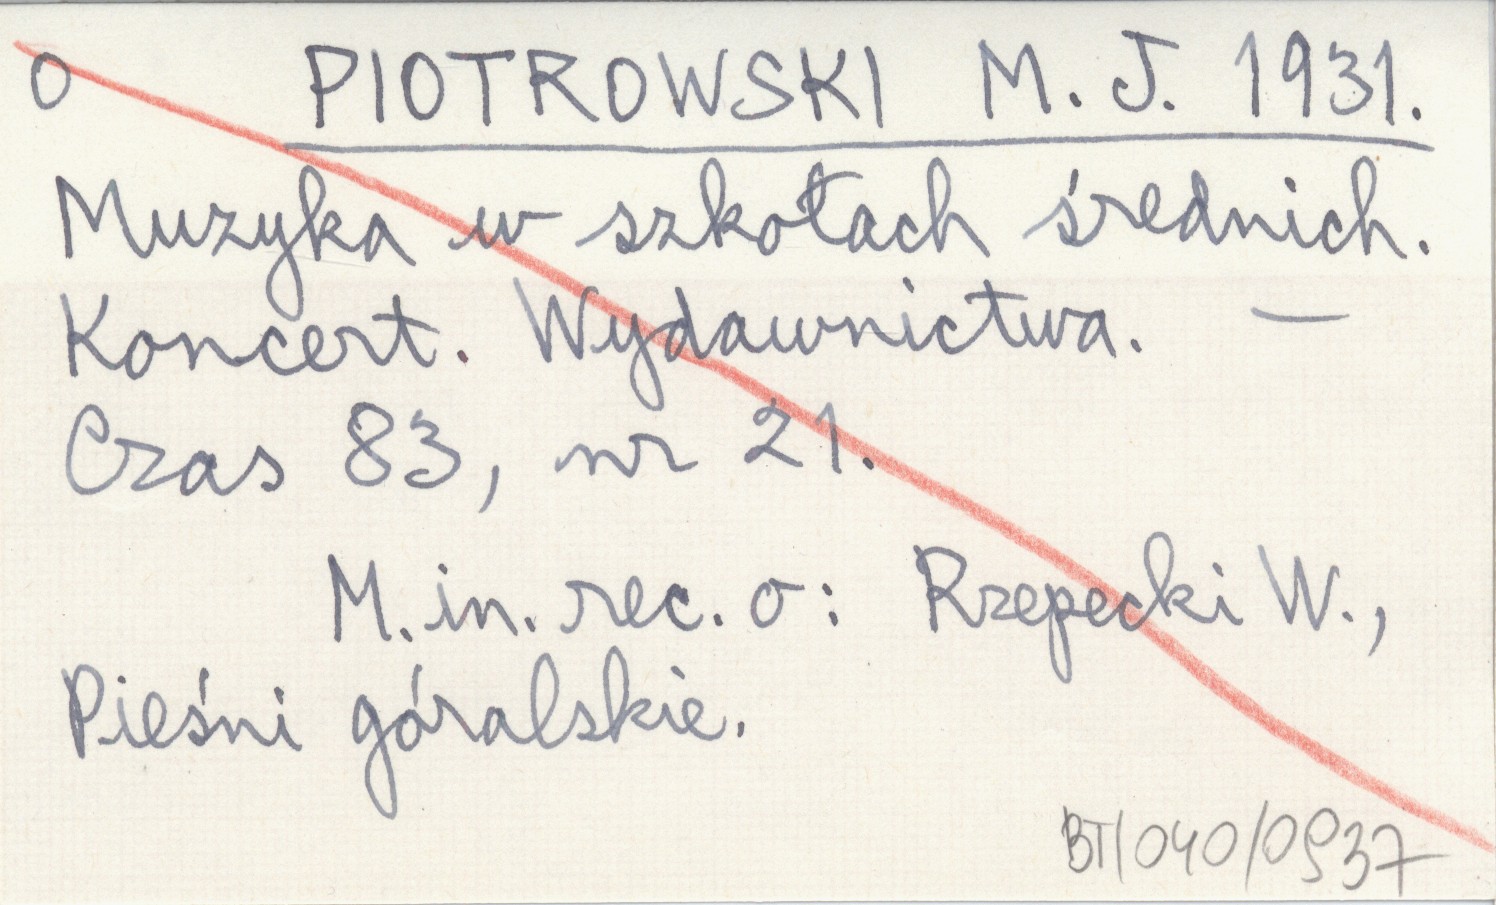 o PIOTROWSKI M. J. 1931.
Muzyka w szkołach średnich.
Koncert. Wydawnictwa. —
Czas 83, nr 21.
M. in. rec. o: Rzepecki W.,
Pieśni góralskie.
BT/040/0937